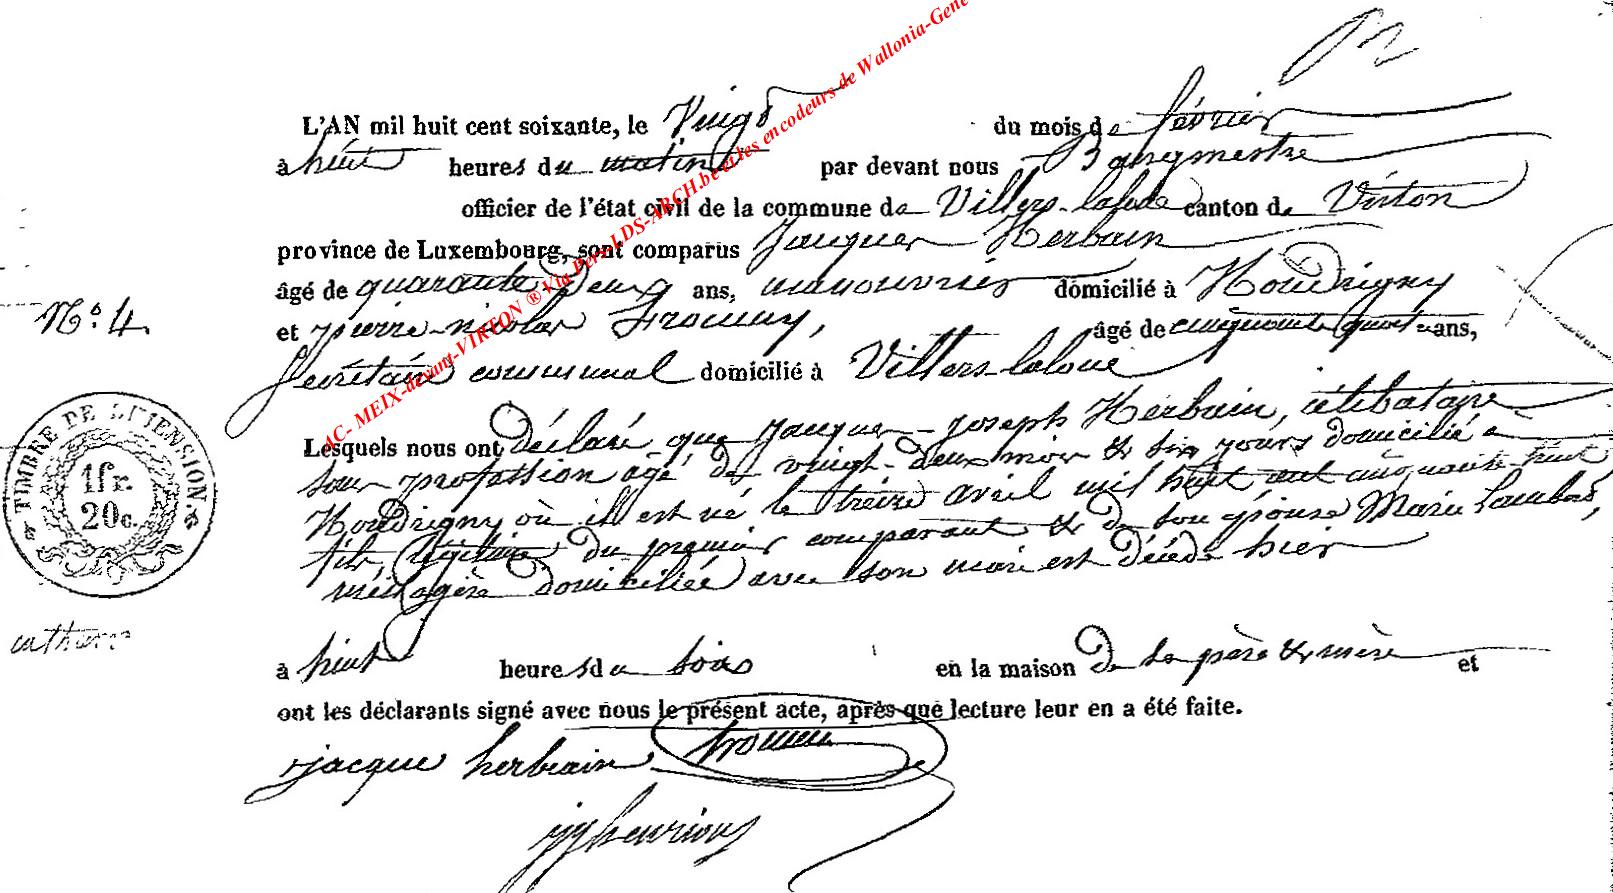 L'AN mil huit cent soixante, le Vingt du mois de février
à huit heures du matin par devant nous Bourgmestre
officier de l'état civil de la commune de Villers-laloue canton de Virton
province de Luxembourg, sont comparus Jacques Herbain
âgé de quarante deux ans, manouvrier domicilié à Houdrigny
N° 4.
et pierre-nicolas âgé de cinquante quatre ans,
Secrétaire communal domicilié à Villers-laloue
Lesquels nous ont déclaré que Jacques-joseph Herbain, célibataire
sans profession âgé de vingt-deux mois & six jours domicilié à
Houdrigny où il est né le treize avril mil huit cent cinquante huit
fils légitime du premier comparant & de son épouse Marie Lambert,
ménagère domiciliée avec son mari est décédé hier
à huit heures du soir en la maison de ses père & mère et
ont les déclarants signé avec nous le présent acte, après que lecture leur en a été faite.
jacque herbain
TIMBRE DE DIMENSION.
1fr. 20c.
AC- MEIX-devant-VIRTON ® Via Pers LDS-ARCH.be et les encodeurs de Wallonia-Gene